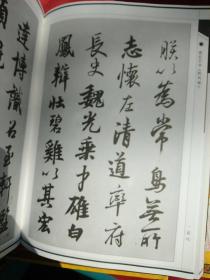 朕以為常鳥無所
志懷左清道率府
長史魏光乘才雄白
鳳辯壯碧雞以其宏
達博識召至軒楹